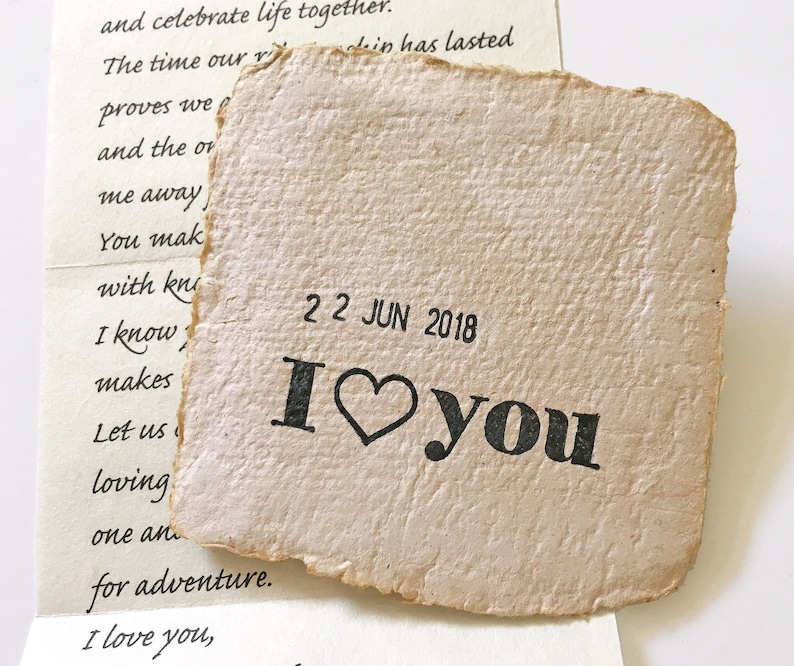 and celebrate life together.
The time our has lasted
proves we
and the
me away
You
with
I know
makes
Let us
loving
one
for adventure.
I love you,
22 JUN 2018
I ♡ you